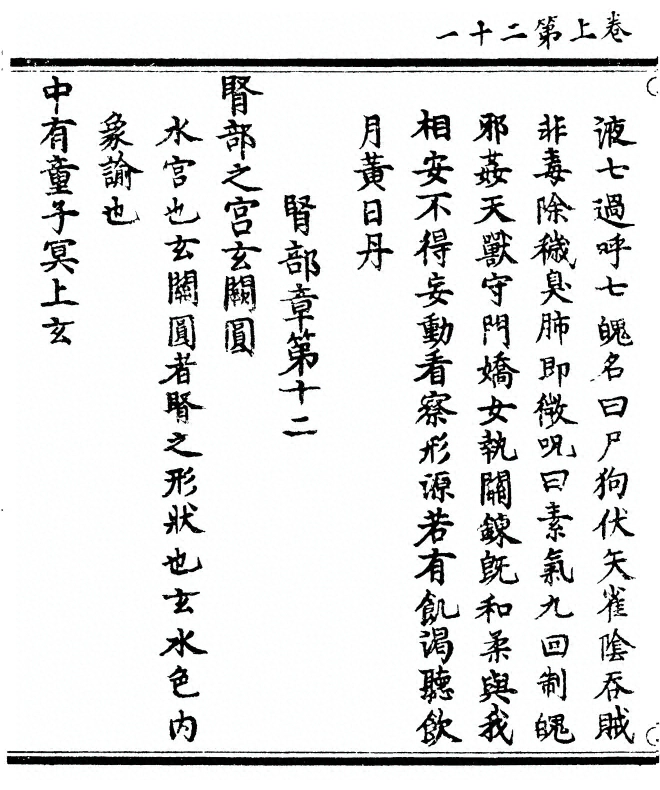 卷上第二十一
液七過呼七魄名曰尸狗伏矢雀陰吞賊
非毒除穢臭肺即微呪曰素氣九回制魄
邪姦天獸守門嬌女執關鍊旣和柔與我
相安不得妄動看察形源若有飢渴聽飲
月黃日丹
腎部章第十二
腎部之宮玄闕圓
水宮也玄關圓者腎之形狀也玄水色內
象諭也
中有童子冥上玄